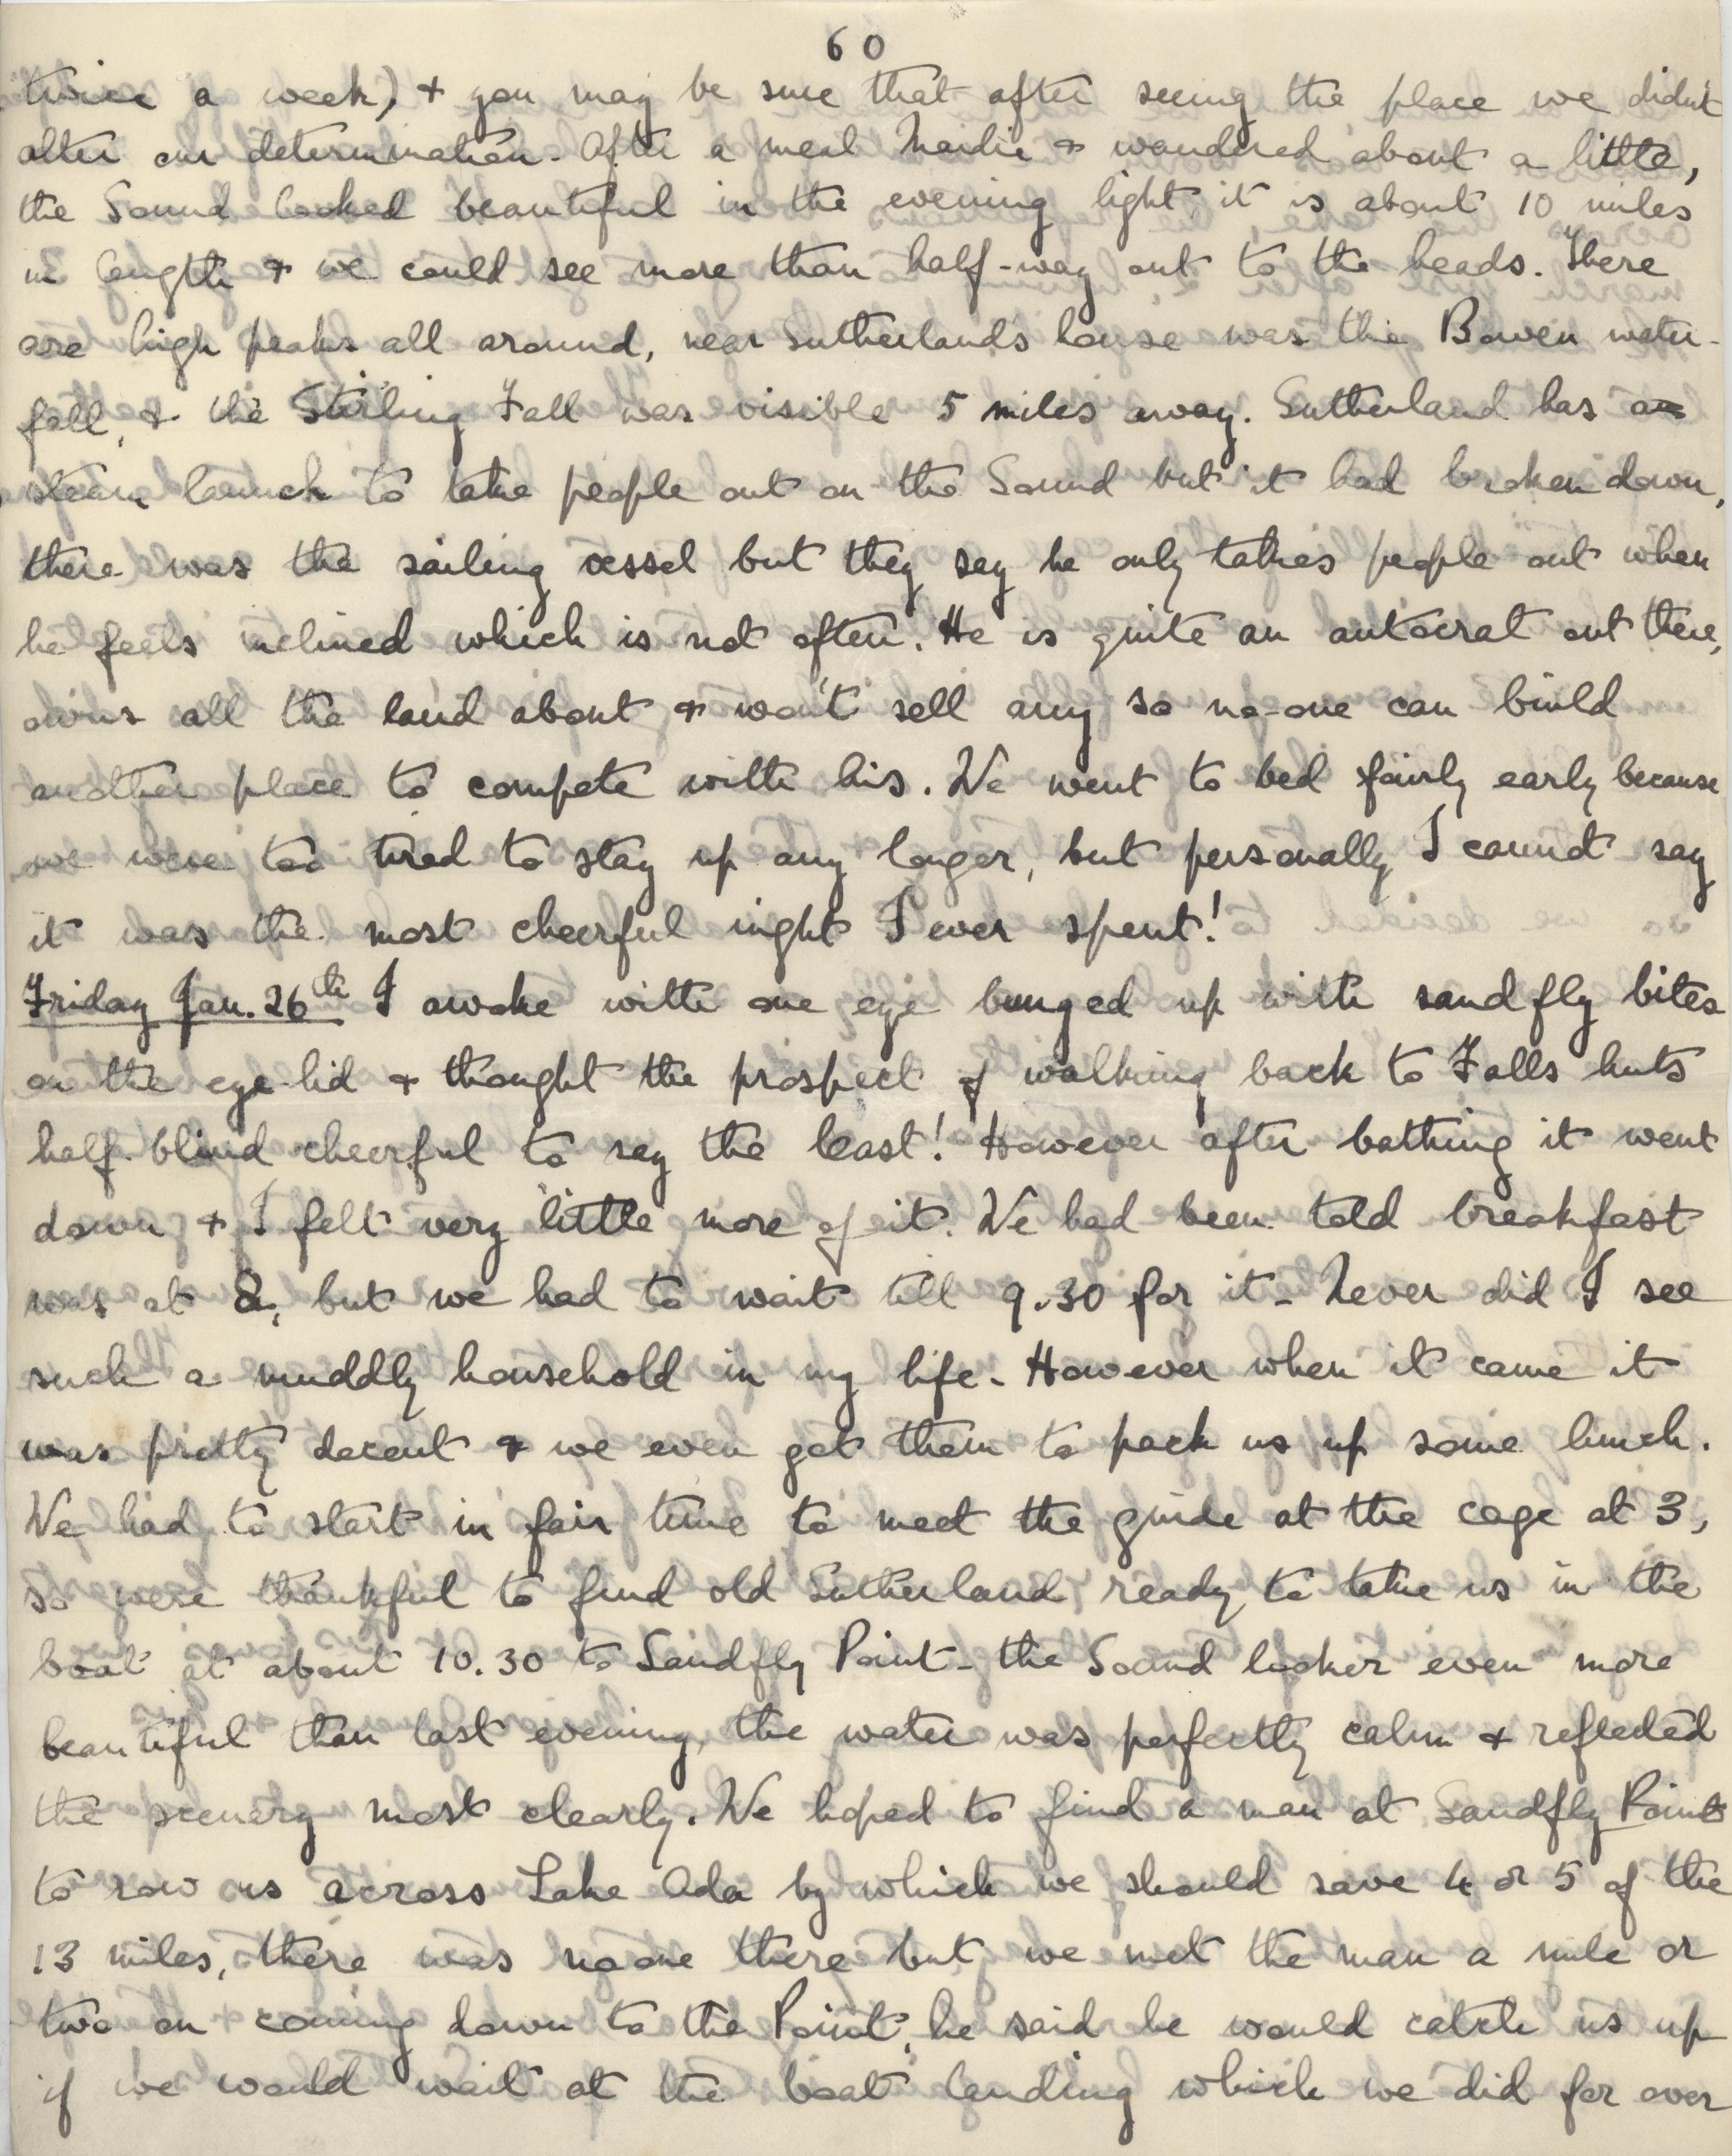 60
twice a week) + you may be sure that after seeing the place we didn't
alter our determination. After a meal Maidie + wandered about a little,
the Sound looked beautiful in the evening light, it is about 10 miles
in length + we could see more than half-way out to the heads. There
are high peaks all around, near Sutherland's house was the Bowen water-
fall, + the Stirling Fall was visible 5 miles away. Sutherland has a
steam launch to take people out on the Sound but it had broken down,
there was the sailing vessel but they say he only takes people out when
he feels inclined which is not often. He is quite an autocrat out there,
owns all the land about + won't sell any so no-one can build
another place to compete with his. We went to bed fairly early because
we were too tired to stay up any longer, but personally I cannot say
it was the most cheerful night I ever spent!
Friday Jan. 26th I awoke with one eye bunged up with sandfly bites
on the eye-lid + thought the prospect of walking back to Falls huts
half-blind cheerful to say the least! However after bathing it went
down + I felt very little more of it. We had been told breakfast
was at 8, but we had to wait till 9.30 for it - Never did I see
such a muddly household in my life - However when it came it
was pretty decent + we even got them to pack us up some lunch.
We had to start in fair time to meet the guide at the cage at 3,
so were thankful to find old Sutherland ready to take us in the
boat at about 10.30 to Sandfly Point - the Sound looker even more
beautiful than last evening, the water was perfectly calm + reflected
the scenery most clearly. We hoped to find a man at Sandfly Point
to row us across Lake Ada by which we should save 4 or 5 of the
13 miles, there was no one there but we met the man a mile or
two on coming down to the Point, he said he would catch us up
if we would wait at the boat landing which we did for over